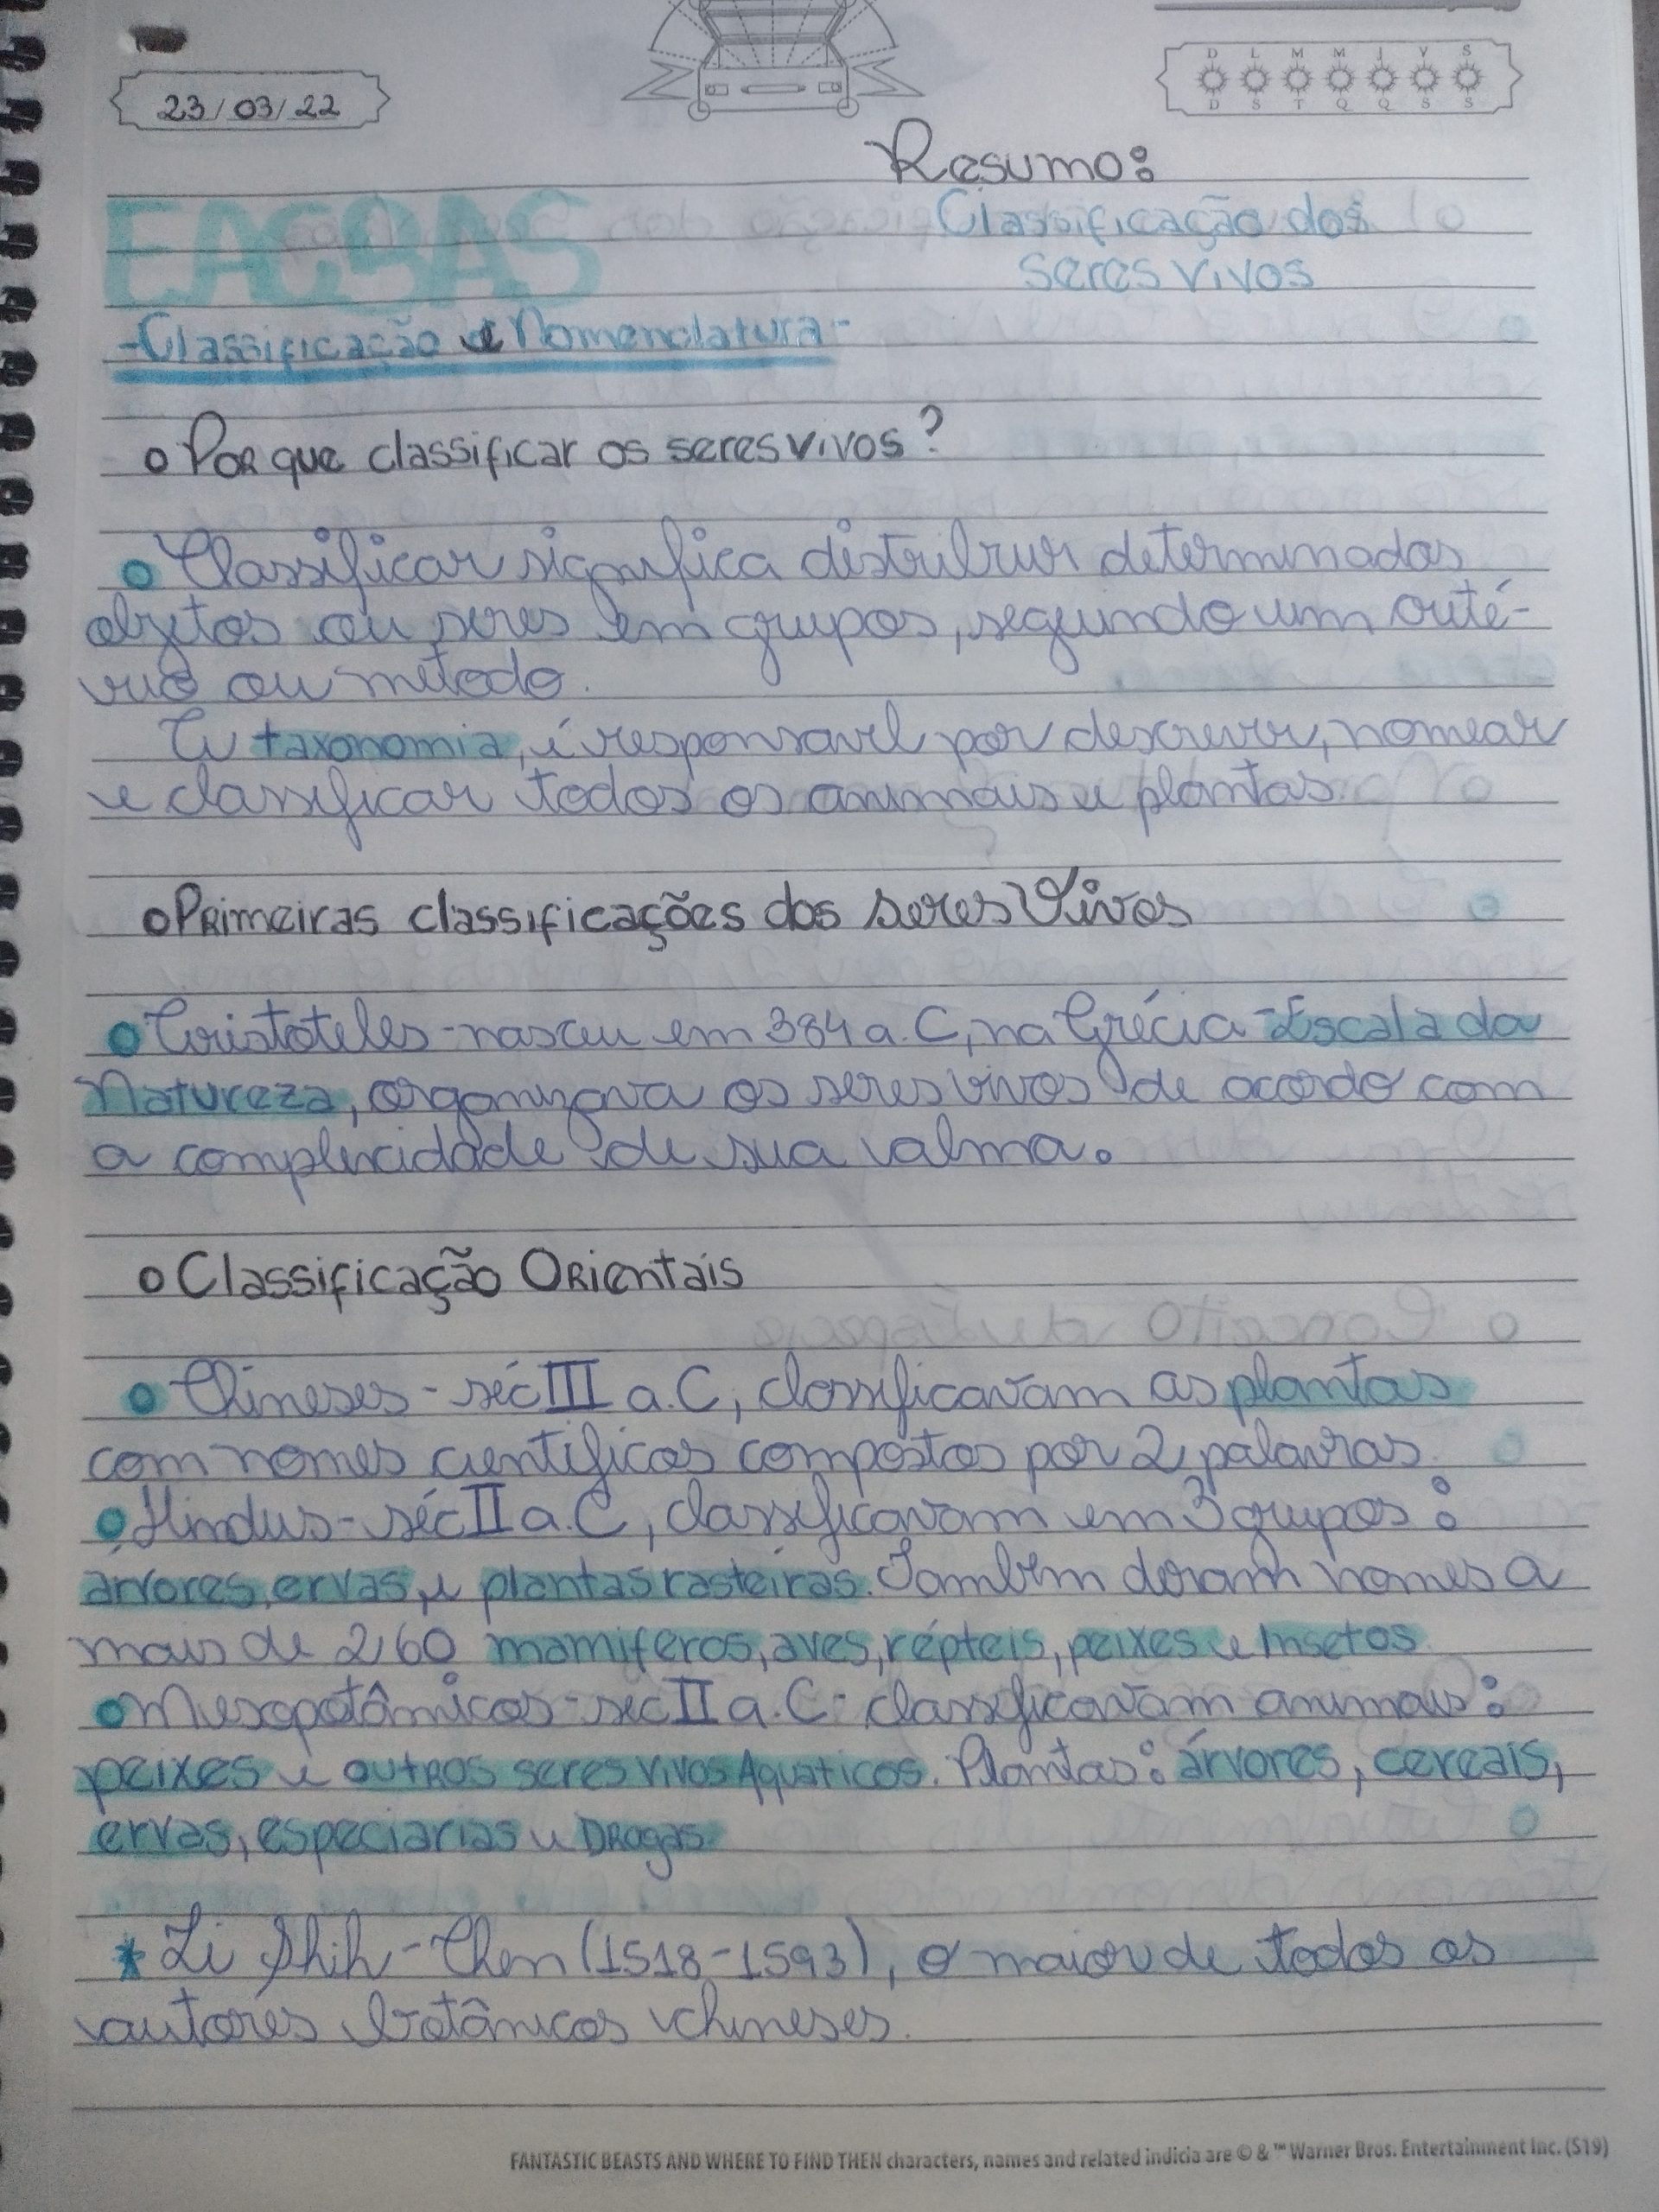 23/03/22
D L M M J V S
D S T Q Q S S
Resumo:
Classificação dos
seres vivos
-Classificação e Nomenclatura-
o Por que classificar os seres vivos?
o Classificar significa distribuir determinados
objetos ou seres em grupos, segundo um crité-
rio ou método.
A taxonomia, é responsavel por descrever, nomear
e classificar todos os animais e plantas.
o Primeiras classificações dos seres Vivos
o Aristoteles - nasceu em 384 a.C, na Grécia - Escala da
Natureza, organizava os seres vivos de acordo com
a complexidade de sua alma.
o Classificação Orientais
o Chineses - séc III a.C, classificavam as plantas
com nomes cientificos compostos por 2 palavras.
o Hindus - séc II a.C, classificavam em 3 grupos:
árvores, ervas, e plantas rasteiras. Também deram nomes a
mais de 260 mamiferos, aves, répteis, peixes e Insetos.
o Mesopotâmicos - sec II a.C - classificavam animais:
peixes e outros seres vivos Aquaticos. Plantas: árvores, cereais,
ervas, especiarias e Drogas.
* Li Shih-Chen (1518-1593), o maior de todos os
autores botânicos chineses.
FANTASTIC BEASTS AND WHERE TO FIND THEN characters, names and related indicia are © & ™ Warner Bros. Entertainment Inc. (S19)